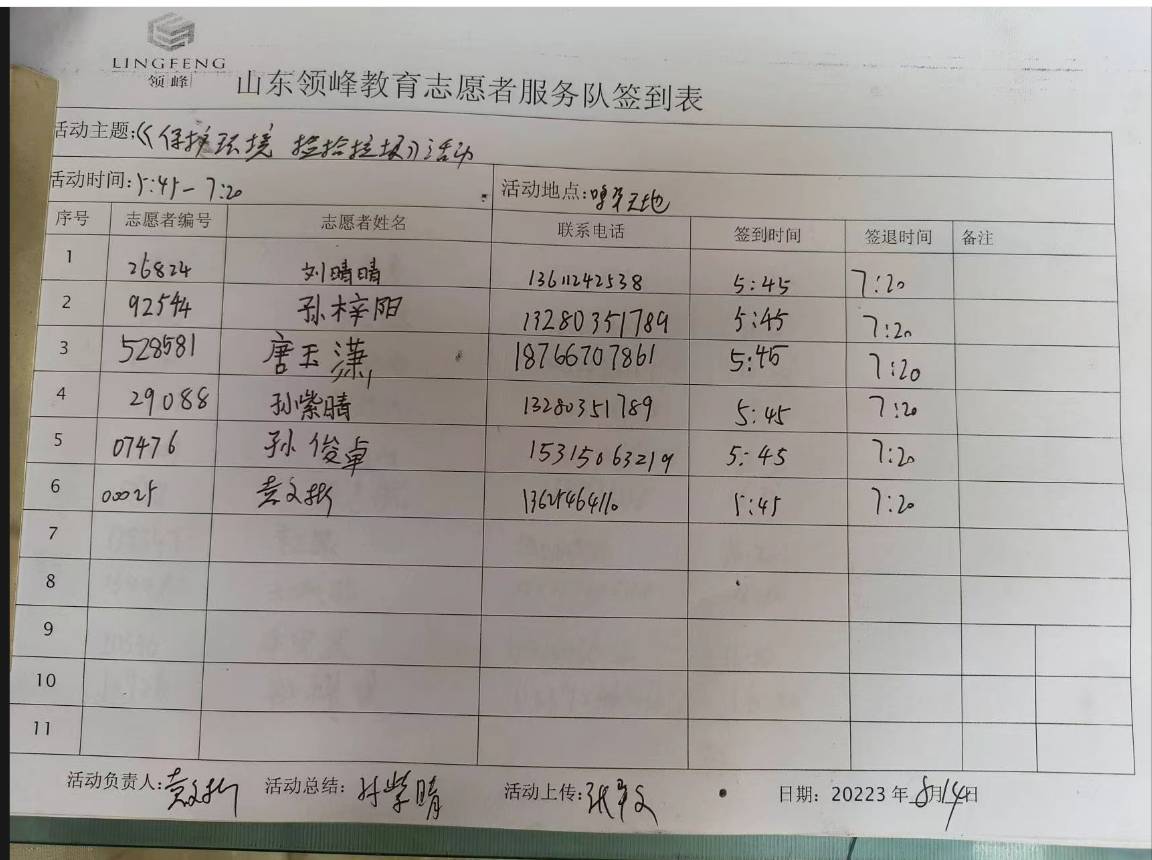 LINGFENG
领峰
山东领峰教育志愿者服务队签到表
活动主题:《保护环境 捡拾垃圾》活动
活动时间:5:45-7:20 活动地点:天地
序号 志愿者编号 志愿者姓名 联系电话 签到时间 签退时间 备注
1 26824 刘晴晴 13611242538 5:45 7:20
2 92544 孙梓阳 13280351789 5:45 7:20
3 528581 唐玉潇 18766707861 5:45 7:20
4 29088 孙紫晴 13280351789 5:45 7:20
5 07476 孙俊卓 15315063219 5:45 7:20
6 00025 袁文彬 5:45 7:20
7
8
9
10
11
活动负责人:袁文彬 活动总结:孙紫晴 活动上传:张 文 日期:20223年8月14日